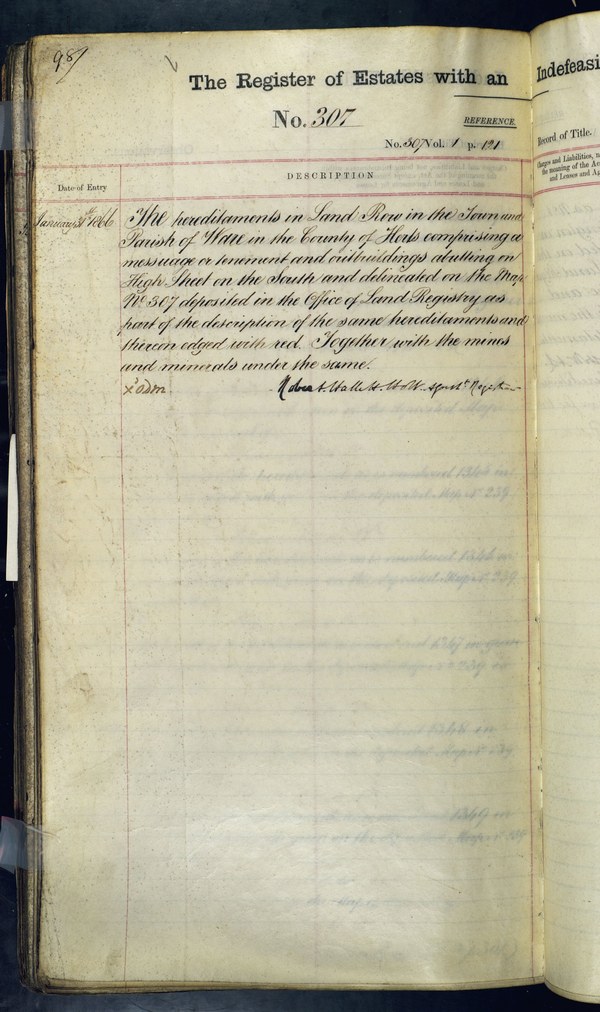 987
The Register of Estates with an
No. 307
REFERENCE.
No. 307 Vol. 1 p. 121
DESCRIPTION
Date of Entry
January 31st 1866
The hereditaments in Land Row in the Town and
Parish of Ware in the County of Herts comprising a
messuage or tenement and outbuildings abutting on
High Street on the South and delineated on the Map
No 307 deposited in the Office of Land Registry as
part of the description of the same hereditaments and
thereon edged with red. Together with the mines
and minerals under the same.
Indefeasi
Record of Title.
Charges and Liabilities, n
the meaning of the Ac
and Leases and Ag